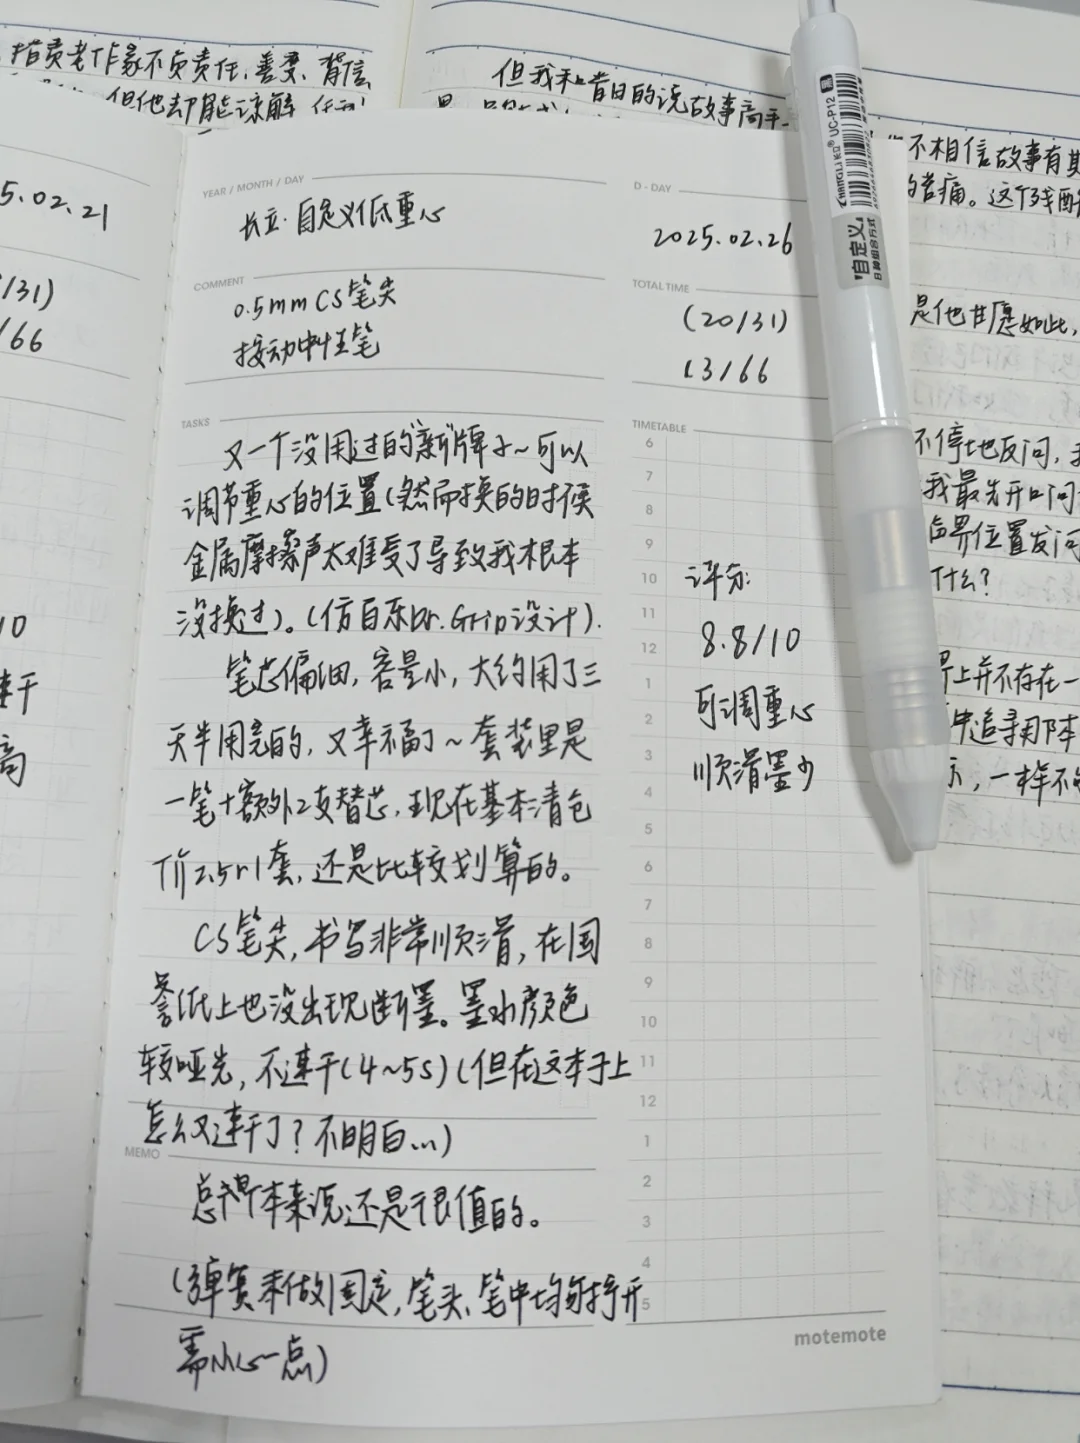 指责老作家不负责任,善变、背信
但他却能谅解
但我和昔日的说故事高手
不相信故事有其
的苦痛。这个残酷
是他甘愿如此,
不停地反问,
我最先开口问
临界位置发问
什么?
界上并不存在一
中追寻用脚本
示,一样不
5.02.21
/31)
/66
10
速干
高
YEAR / MONTH / DAY
长立·自定义低重心
D-DAY
2025.02.26
COMMENT
0.5mm CS笔尖
按动中性笔
TOTAL TIME
(20/31)
13/66
TASKS
又一个没用过的"新"牌子~可以
调节重心的位置(然而换的时候
金属摩擦声太难受了导致我根本
没换过)。(仿百乐Dr.Grip设计).
笔芯偏细,容量小,大约用了三
天半用完的,又幸福了~套装里是
一笔+额外2支替芯,现在基本清仓
价2.5r1套,还是比较划算的。
CS笔尖,书写非常顺滑,在国
誉纸上也没出现断墨。墨水颜色
较哑光,不速干(4~5s)(但在这本子上
怎么又速干了?不明白...)
MEMO
总得来说还是很值的。
(弹簧未做固定,笔头、笔中均可拧开
需小心一点)
TIMETABLE
6
7
8
9
10
11
12
1
2
3
4
5
6
7
8
9
10
11
12
1
2
3
4
5
评分:
8.8/10
可调重心
顺滑墨少
motemote
CHANGLI 长立® UC-P12
"自定义"